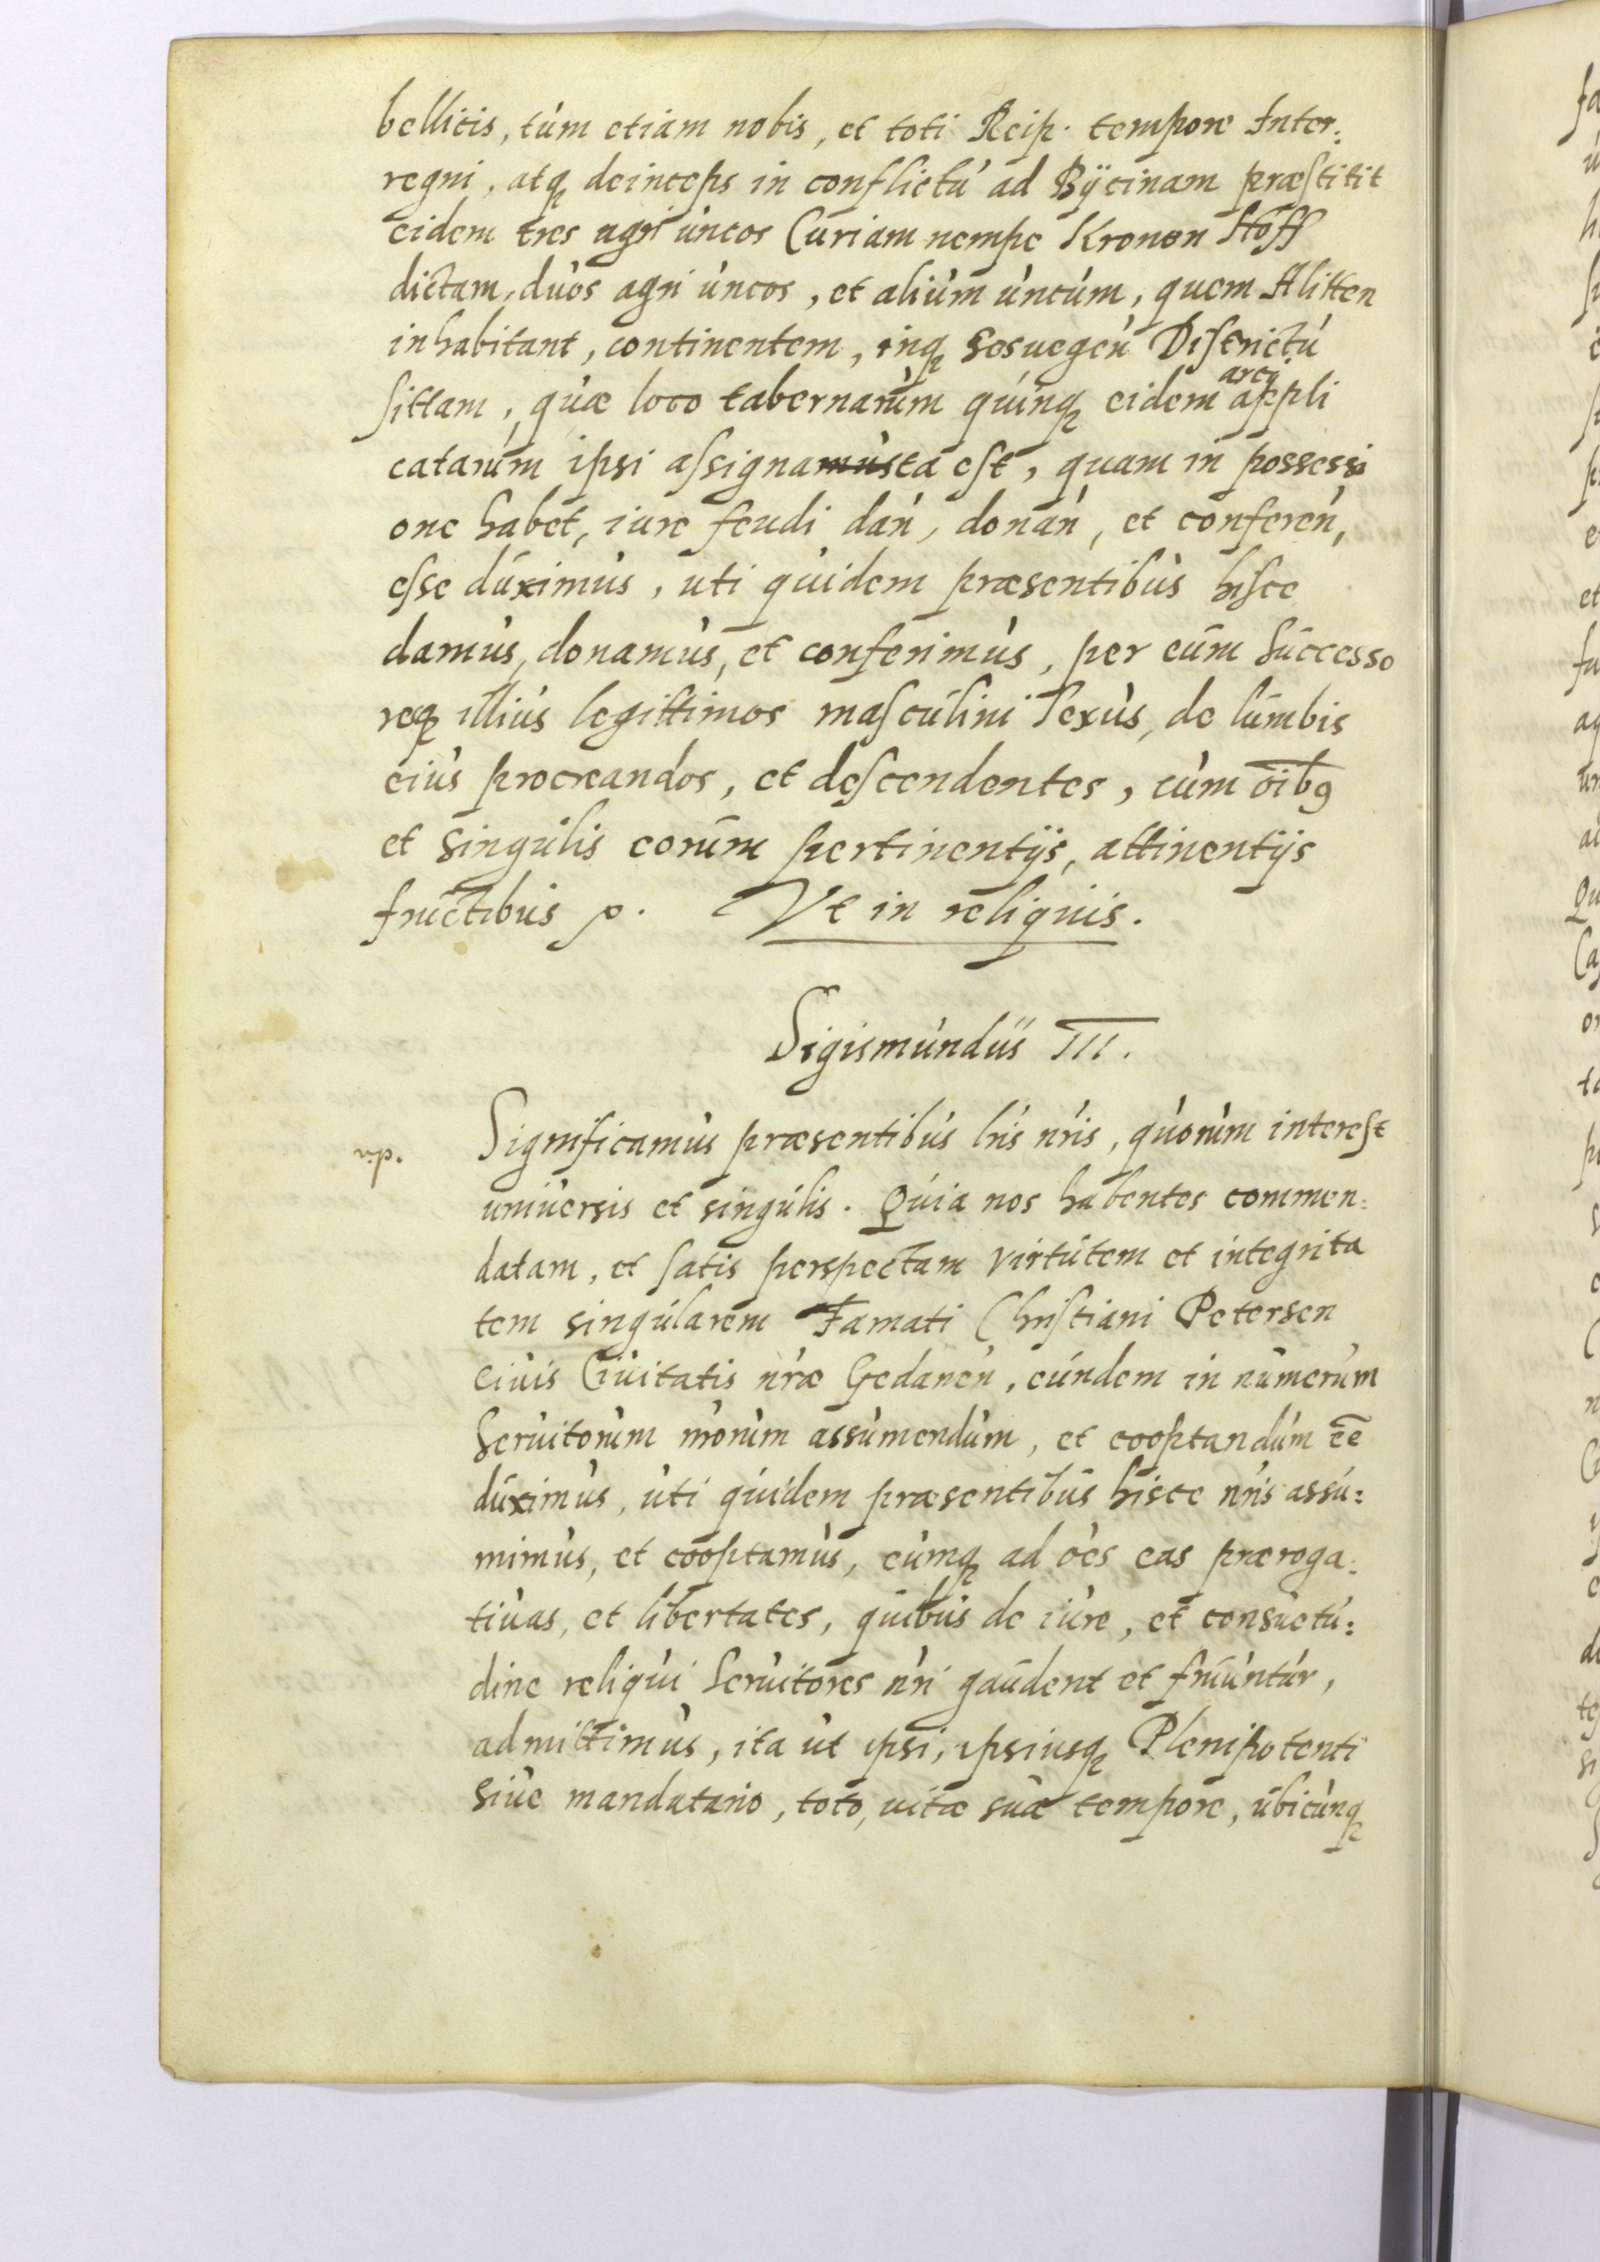 bellicis, tùm etiam nobis, et toti Reip. tempore Inter:
regni, atq deinceps in conflictù ad Bÿcinam præstitit
eidem tres agri ùncos Curiam nempe Kronen Hoff
dictam, dùos agri ùncos, et aliùm ùncùm, quem Alitten
inhabitant, continentem, inq Sesuegeń Districtù
sittam, qùæ loco tabernarùm qùinq eidem arci appli
catarùm ipsi assignamùsta est, quam in possessi
one habet, iure feudi dań, donań, et confereń,
esse dùximùs, uti qùidem præsentibùs hisce
damùs, donamùs, et conferimùs, per eùm sùccesso
req illiùs legittimos mascùlini sexùs, de lùmbis
eiùs procreandos, et descendentes, cùm oibq
et singùlis eorùm pertinentijs, attinentijs
frùctibùs p. Vt in reliqùis.
Sigismùndùs III.
Significamùs præsentibùs lris nris, qùorùm interest
uniùersis et singùlis. Qùia nos habentes commen:
datam, et satis perspectam virtùtem et integrita
tem singùlarem Famati Christiani Petersen
ciùis Ciùitatis nræ Gedaneń, eùndem in nùmerùm
Seruitorùm nrorùm assùmendùm, et cooptandùm ee
dùximùs, ùti qùidem præsentibùs hisce nris assù:
mimùs, et cooptamùs, eùmq ad oes eas præroga:
tiùas, et libertates, qùibùs de iùre, et consùetù:
dine reliqùi Seruitores nri gaùdent et frùùntùr,
admittimùs, ita ùt ipsi, ipsiusq Plenipotenti
siùe mandatario, toto, uitæ sùæ tempore, ùbicùnq